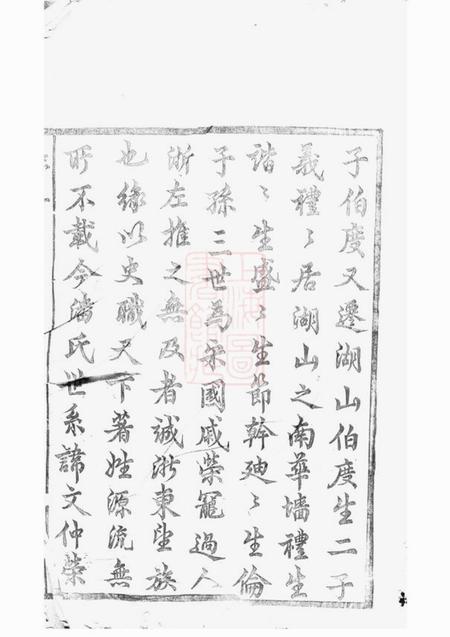 子伯度又遷湖山伯度生二子
義禮〻居湖山之南華墻禮生
諧〻生盛〻生節幹廸〻生倫
子孫三世為宋國戚榮寵過人
浙左推之無及者誠浙東望族
也緣以史職天下著姓源流無
所不載今滿氏世系諱文仲榮